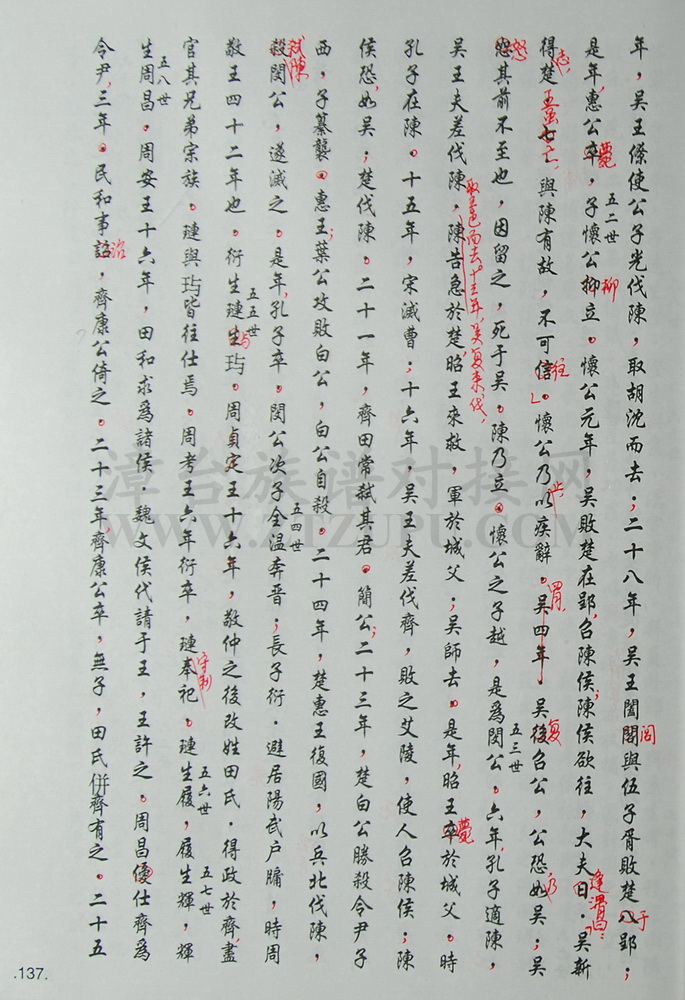 年，吳王僚使公子光伐陳，取胡沈而去；二十八年，吳王闔閭與伍子胥敗楚入郢；
是年，惠公卒，子懷公柳立。懷公元年，吳敗楚在郢，召陳侯；陳侯欲往，大夫曰．吳新
得楚，王，與陳有故，不可信。懷公乃以疾辭。吳四年 吳復召公，公恐，如吳；吳
怒其前不至也，因留之，死于吳。陳乃立。懷公之子越，是爲閔公。六年，孔子適陳，
吳王夫差伐陳，陳告急於楚，昭王來救，軍於城父；吳師去。是年，昭王卒於城父。時
取三邑而去。十三年，吳復來伐，
孔子在陳。十五年，宋滅曹；十六年，吳王夫差伐齊，敗之艾陵，使人召陳侯；陳
侯恐，如吳；楚伐陳。二十一年，齊田常弒其君。簡公；二十三年，楚白公勝殺令尹子
西，子綦襲。惠王；葉公攻敗白公，白公自殺。二十四年，楚惠王復國，以兵北伐陳，
殺閔公，遂滅之。是年，孔子卒。閔公次子全溫奔晉；長子衍．避居陽武户牖，時周
弒陳
五四世
敬王四十二年也。衍生璉生瑦。周貞定王十六年，敬仲之後改姓田氏．得政於齊，盡
五五世
與
官其兄弟宗族。璉與瑦皆往仕焉。周考王六年衍卒，璉奉祀。璉生履，履生輝，輝
五六世
五七世
生周昌。周安王十六年，田和求爲諸侯．魏文侯代請于王，王許之。周昌優仕齊爲
五八世
令尹，三年。民和事詔，齊康公倚之。二十三年，齊康公卒，無子，田氏併齊有之。二十五
治
五二世
五三世
漳台族谱对接网
WWW.ZTZUPU.COM
.137.